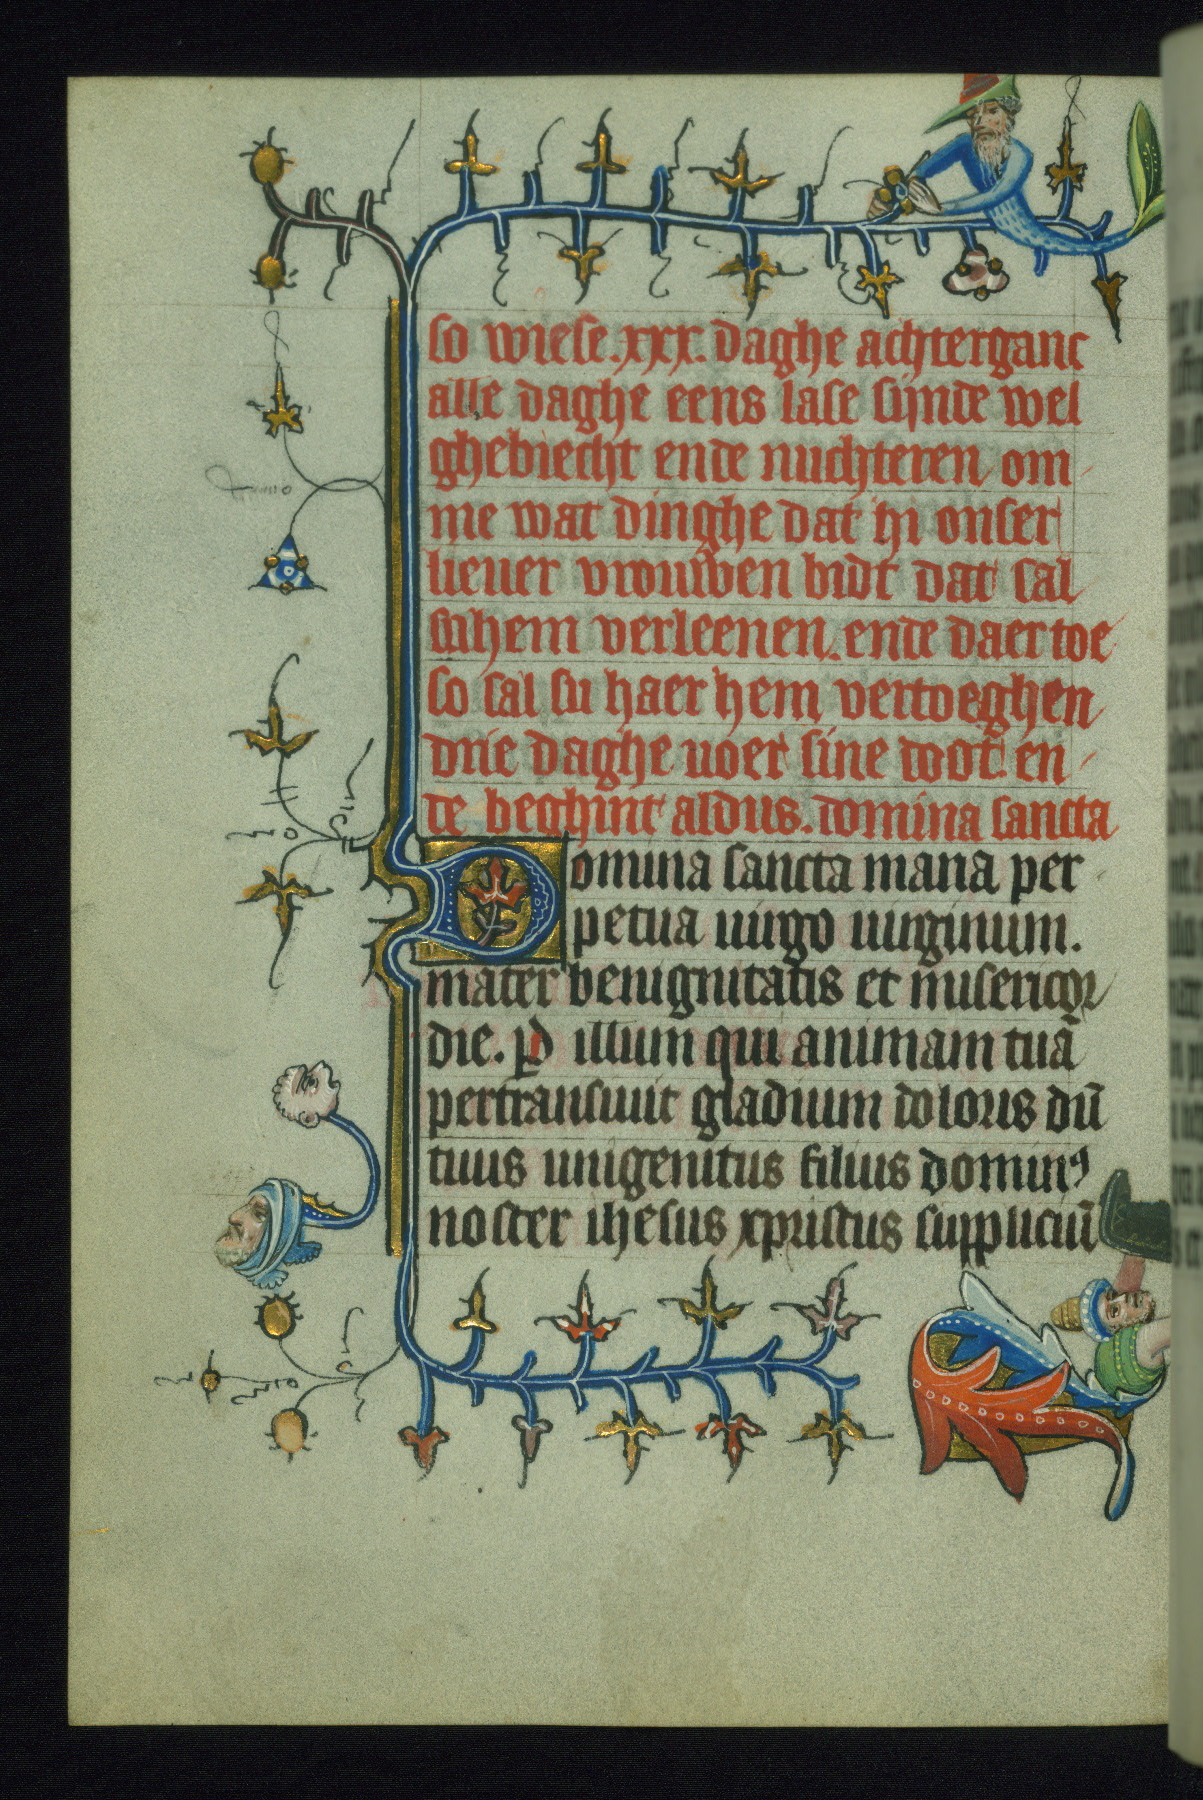 so wiese .xxx. daghe achterganc
alle daghe eens lase sijnde wel
ghebiecht ende nuchteren om
me wat dinghe dat hi onser
lieuer vrouwen bidt dat sal
si hem verleenen. ende daer toe
so sal si haer hem vertoeghen
drie daghe uoer sine doot. en
de beghint aldus. domina sancta
Domina sancta maria per
petua uirgo uirginum.
mater benignitatis et misericor
die. P illum qui animam tuā
pertransiuit gladium doloris dū
tuus unigenitus filius dominꝰ
noster ihesus xpristus suppliciū